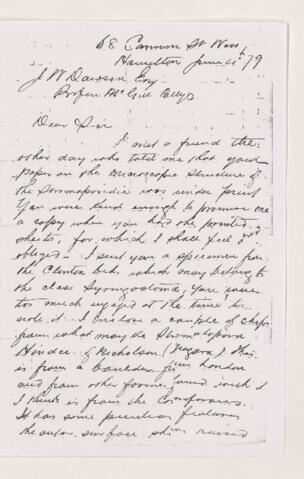 68 Cannon St West
Hamilton June 4th 79
J W Dawson Esq
Profer McGill Collge
Dear Sir
I met a friend the
other day who told me that your
paper on the Microscopic structure of
the Stromaporidia was under print
You were kind enough to promise me
a copy when you had the printed
sheets, for which I shall feel
obliged. I sent you a specimen from
the Clinton beds which may belong to
the class you were
too much engaged at the time to
note it. I enclose a couple of chips
from what may be Stromatopora
Hindei of Nicholson (Niagara). This
is from a London
and from other forms found with it
I think is from the Corniferous.
It has some peculiar features
the under surface raised